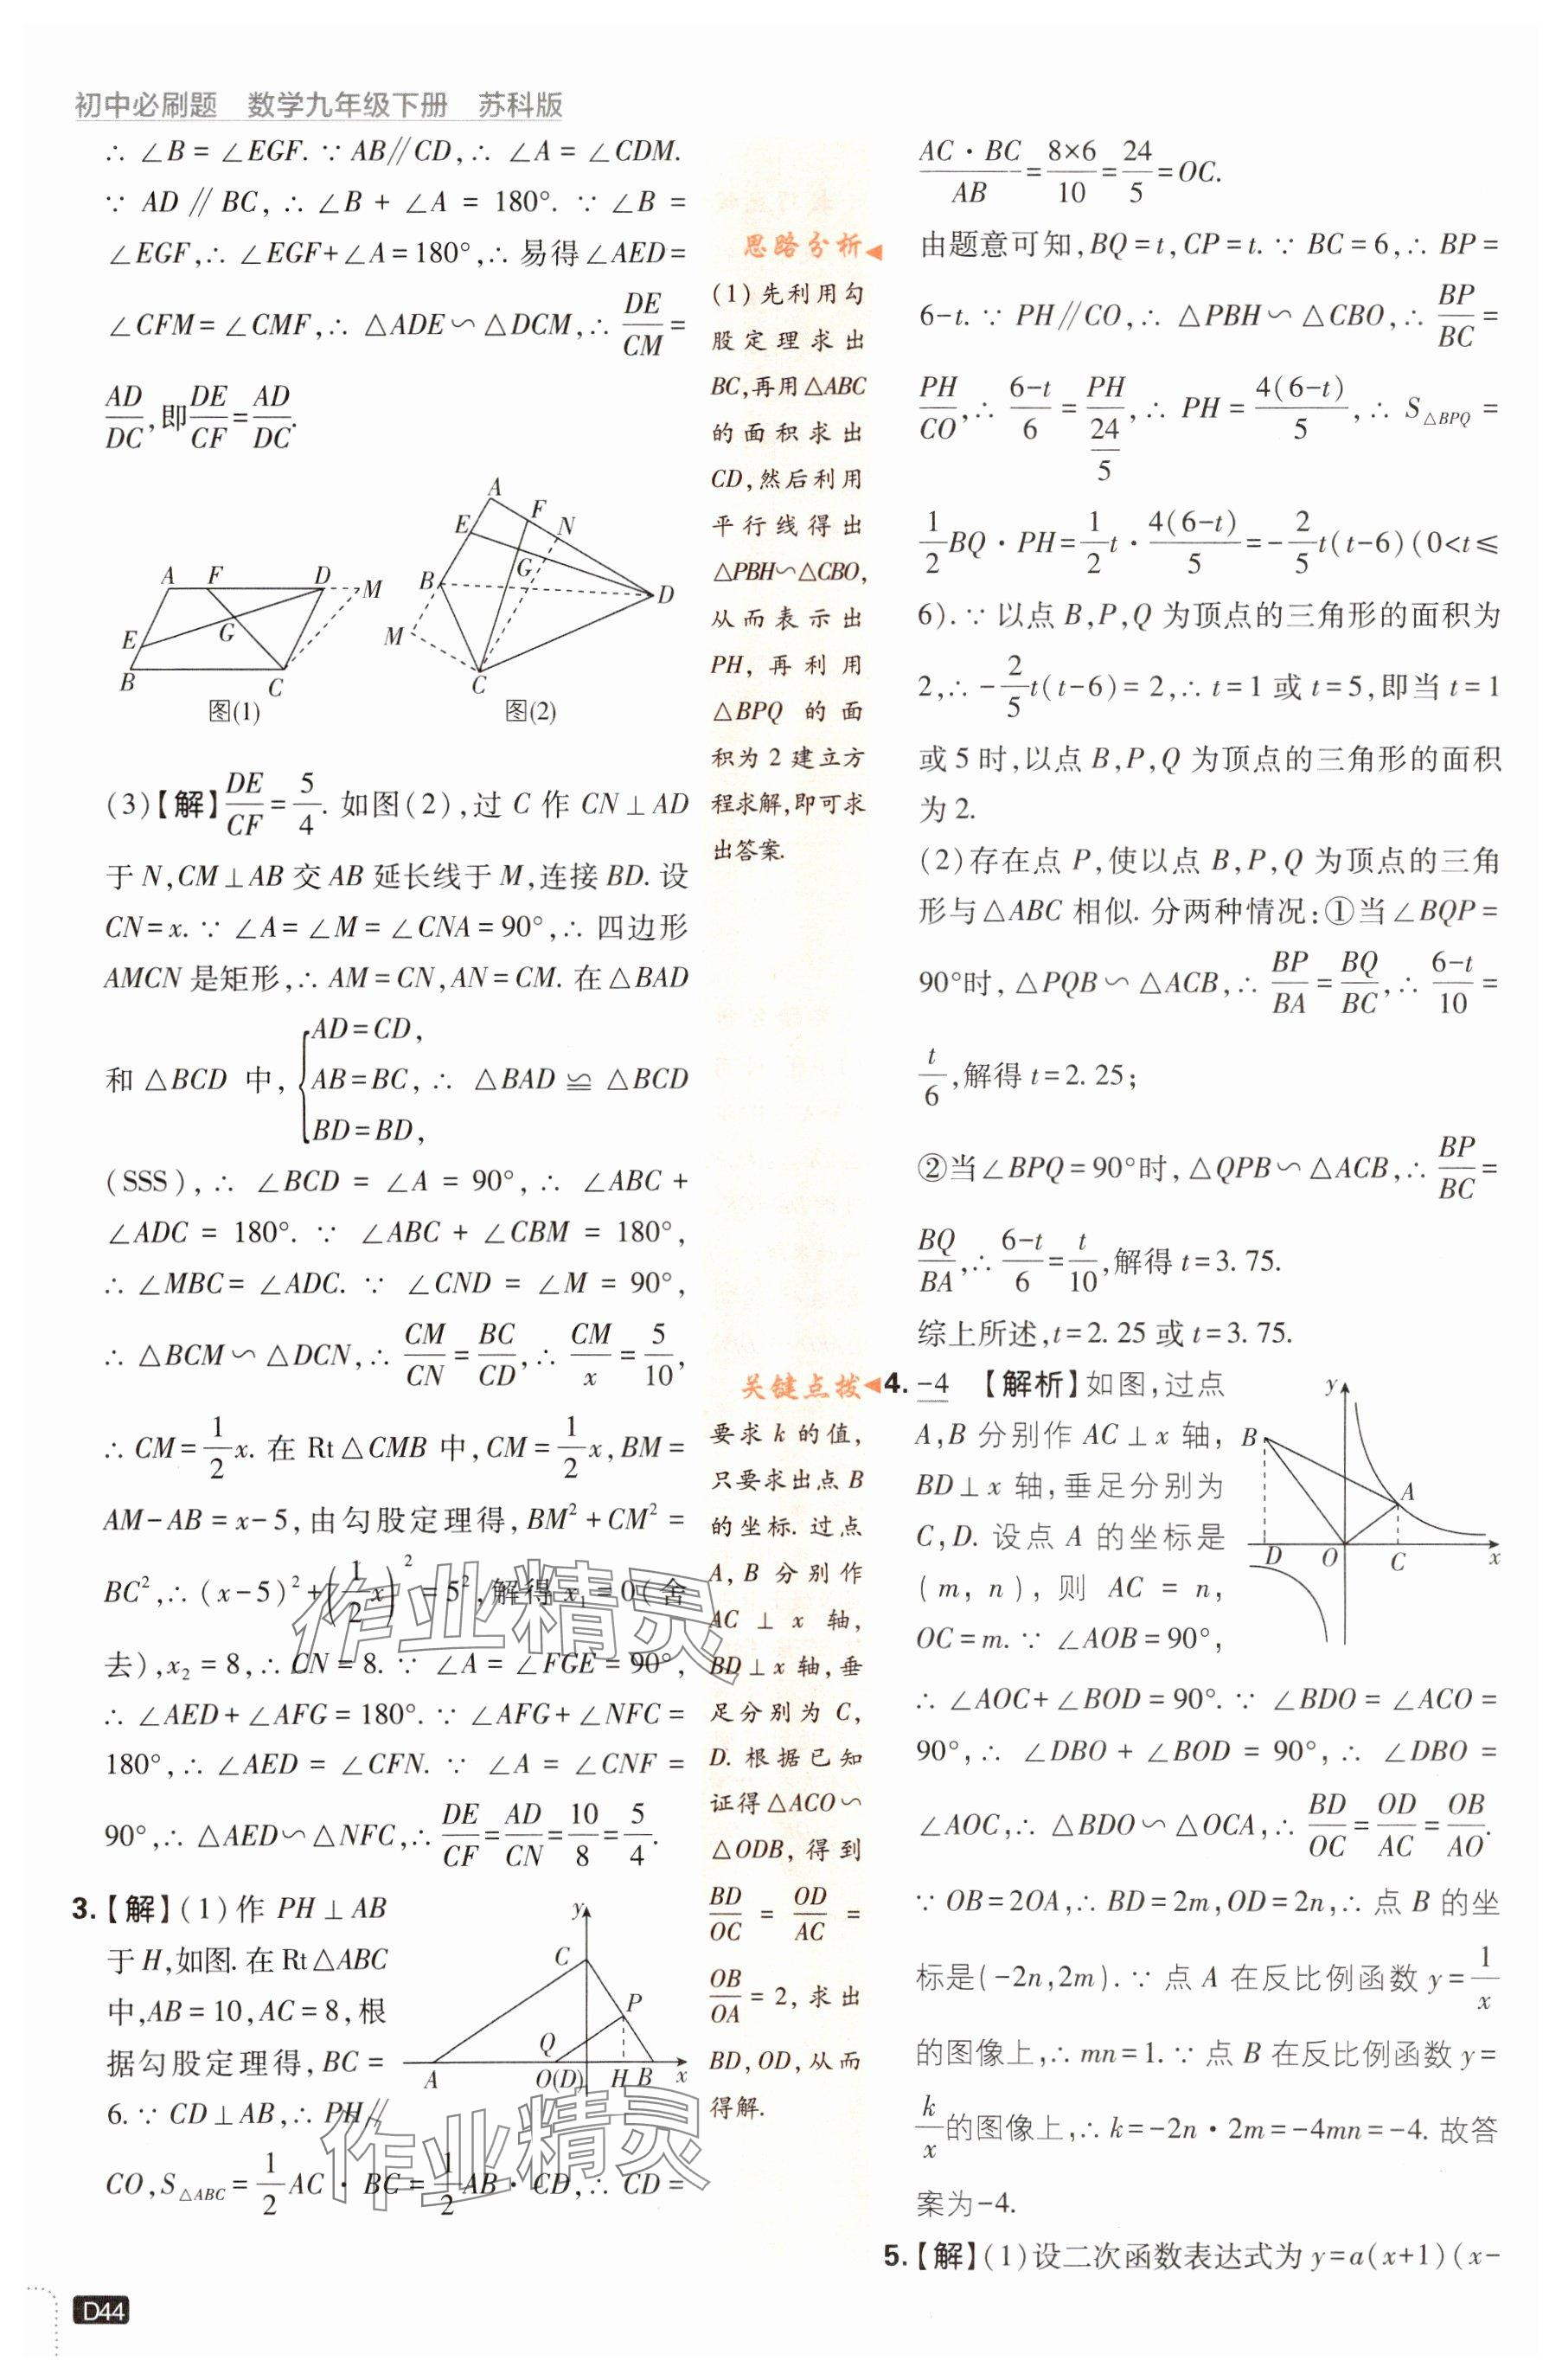 初中必刷题 数学九年级下册 苏科版
∴ ∠B = ∠EGF. ∵ AB∥CD,∴ ∠A = ∠CDM.
∵ AD ∥ BC, ∴ ∠B + ∠A = 180°. ∵ ∠B =
∠EGF,∴ ∠EGF+∠A=180°,∴ 易得∠AED=
∠CFM=∠CMF,∴ △ADE∽△DCM,∴ DE/CM=
AD/DC,即DE/CF=AD/DC.
A F D M
E G
B C
图(1)
A F N
E G
B D
M C
图(2)
(3)【解】DE/CF=5/4. 如图(2),过 C 作 CN⊥AD
于 N,CM⊥AB 交 AB 延长线于 M,连接 BD. 设
CN=x. ∵ ∠A=∠M=∠CNA=90°,∴ 四边形
AMCN 是矩形,∴ AM=CN,AN=CM. 在△BAD
和 △BCD 中, {AD=CD,
AB=BC, ∴ △BAD≌△BCD
BD=BD,
(SSS), ∴ ∠BCD = ∠A = 90°, ∴ ∠ABC +
∠ADC = 180°. ∵ ∠ABC + ∠CBM = 180°,
∴ ∠MBC=∠ADC. ∵ ∠CND = ∠M = 90°,
∴ △BCM∽△DCN,∴ CM/CN=BC/CD,∴ CM/x=5/10,
∴ CM=1/2x. 在 Rt△CMB 中,CM=1/2x,BM=
AM-AB=x-5,由勾股定理得,BM²+CM²=
BC²,∴ (x-5)²+(1/2x)²=5²,解得 x₁=0(舍
去),x₂=8,∴ CN=8. ∵ ∠A=∠FGE=90°,
∴ ∠AED+∠AFG=180°. ∵ ∠AFG+∠NFC=
180°,∴ ∠AED = ∠CFN. ∵ ∠A = ∠CNF =
90°,∴ △AED∽△NFC,∴ DE/CF=AD/CN=10/8=5/4.
3.【解】(1)作 PH⊥AB
于 H,如图. 在 Rt△ABC
中,AB=10,AC=8,根
据勾股定理得,BC=
6. ∵ CD⊥AB,∴ PH∥
CO,S△ABC=1/2AC·BC=1/2AB·CD,∴ CD=
y
C
P
Q
A O(D) H B x
思路分析
(1)先利用勾
股定理求出
BC,再用△ABC
的面积求出
CD,然后利用
平行线得出
△PBH∽△CBO,
从而表示出
PH, 再利用
△BPQ 的面
积为 2 建立方
程求解,即可求
出答案.
关键点拨
要求 k 的值,
只要求出点 B
的坐标. 过点
A,B 分别作
AC ⊥ x 轴,
BD⊥x 轴,垂
足分别为 C,
D. 根据已知
证得△ACO∽
△ODB, 得到
BD/OC = OD/AC =
OB/OA=2, 求出
BD,OD,从而
得解.
AC·BC/AB=8×6/10=24/5=OC.
由题意可知,BQ=t,CP=t. ∵ BC=6,∴ BP=
6-t. ∵ PH∥CO,∴ △PBH∽△CBO,∴ BP/BC=
PH/CO,∴ (6-t)/6=PH/(24/5),∴ PH=4(6-t)/5,∴ S△BPQ=
1/2BQ·PH=1/2t·4(6-t)/5=-2/5t(t-6)(0<t≤
6). ∵ 以点 B,P,Q 为顶点的三角形的面积为
2,∴ -2/5t(t-6)=2,∴ t=1 或 t=5,即当 t=1
或 5 时,以点 B,P,Q 为顶点的三角形的面积
为 2.
(2)存在点 P,使以点 B,P,Q 为顶点的三角
形与△ABC 相似. 分两种情况:①当∠BQP=
90°时,△PQB∽△ACB,∴ BP/BA=BQ/BC,∴ (6-t)/10=
t/6,解得 t=2.25;
②当∠BPQ=90°时,△QPB∽△ACB,∴ BP/BC=
BQ/BA,∴ (6-t)/6=t/10,解得 t=3.75.
综上所述,t=2.25 或 t=3.75.
4. -4 【解析】如图,过点
A,B 分别作 AC⊥x 轴,
BD⊥x 轴,垂足分别为
C,D. 设点 A 的坐标是
(m, n), 则 AC = n,
OC=m. ∵ ∠AOB=90°,
y
B
A
D O C x
∴ ∠AOC+∠BOD=90°. ∵ ∠BDO=∠ACO=
90°,∴ ∠DBO + ∠BOD = 90°,∴ ∠DBO =
∠AOC,∴ △BDO∽△OCA,∴ BD/OC=OD/AC=OB/AO.
∵ OB=2OA,∴ BD=2m,OD=2n,∴ 点 B 的坐
标是(-2n,2m). ∵ 点 A 在反比例函数 y=1/x
的图像上,∴ mn=1. ∵ 点 B 在反比例函数 y=
k/x的图像上,∴ k=-2n·2m=-4mn=-4. 故答
案为-4.
5.【解】(1)设二次函数表达式为 y=a(x+1)(x-
作业精灵
作业精灵
D44